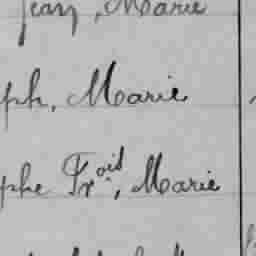 Jean, Marie
ph, Marie
phe Fr.oid, Marie